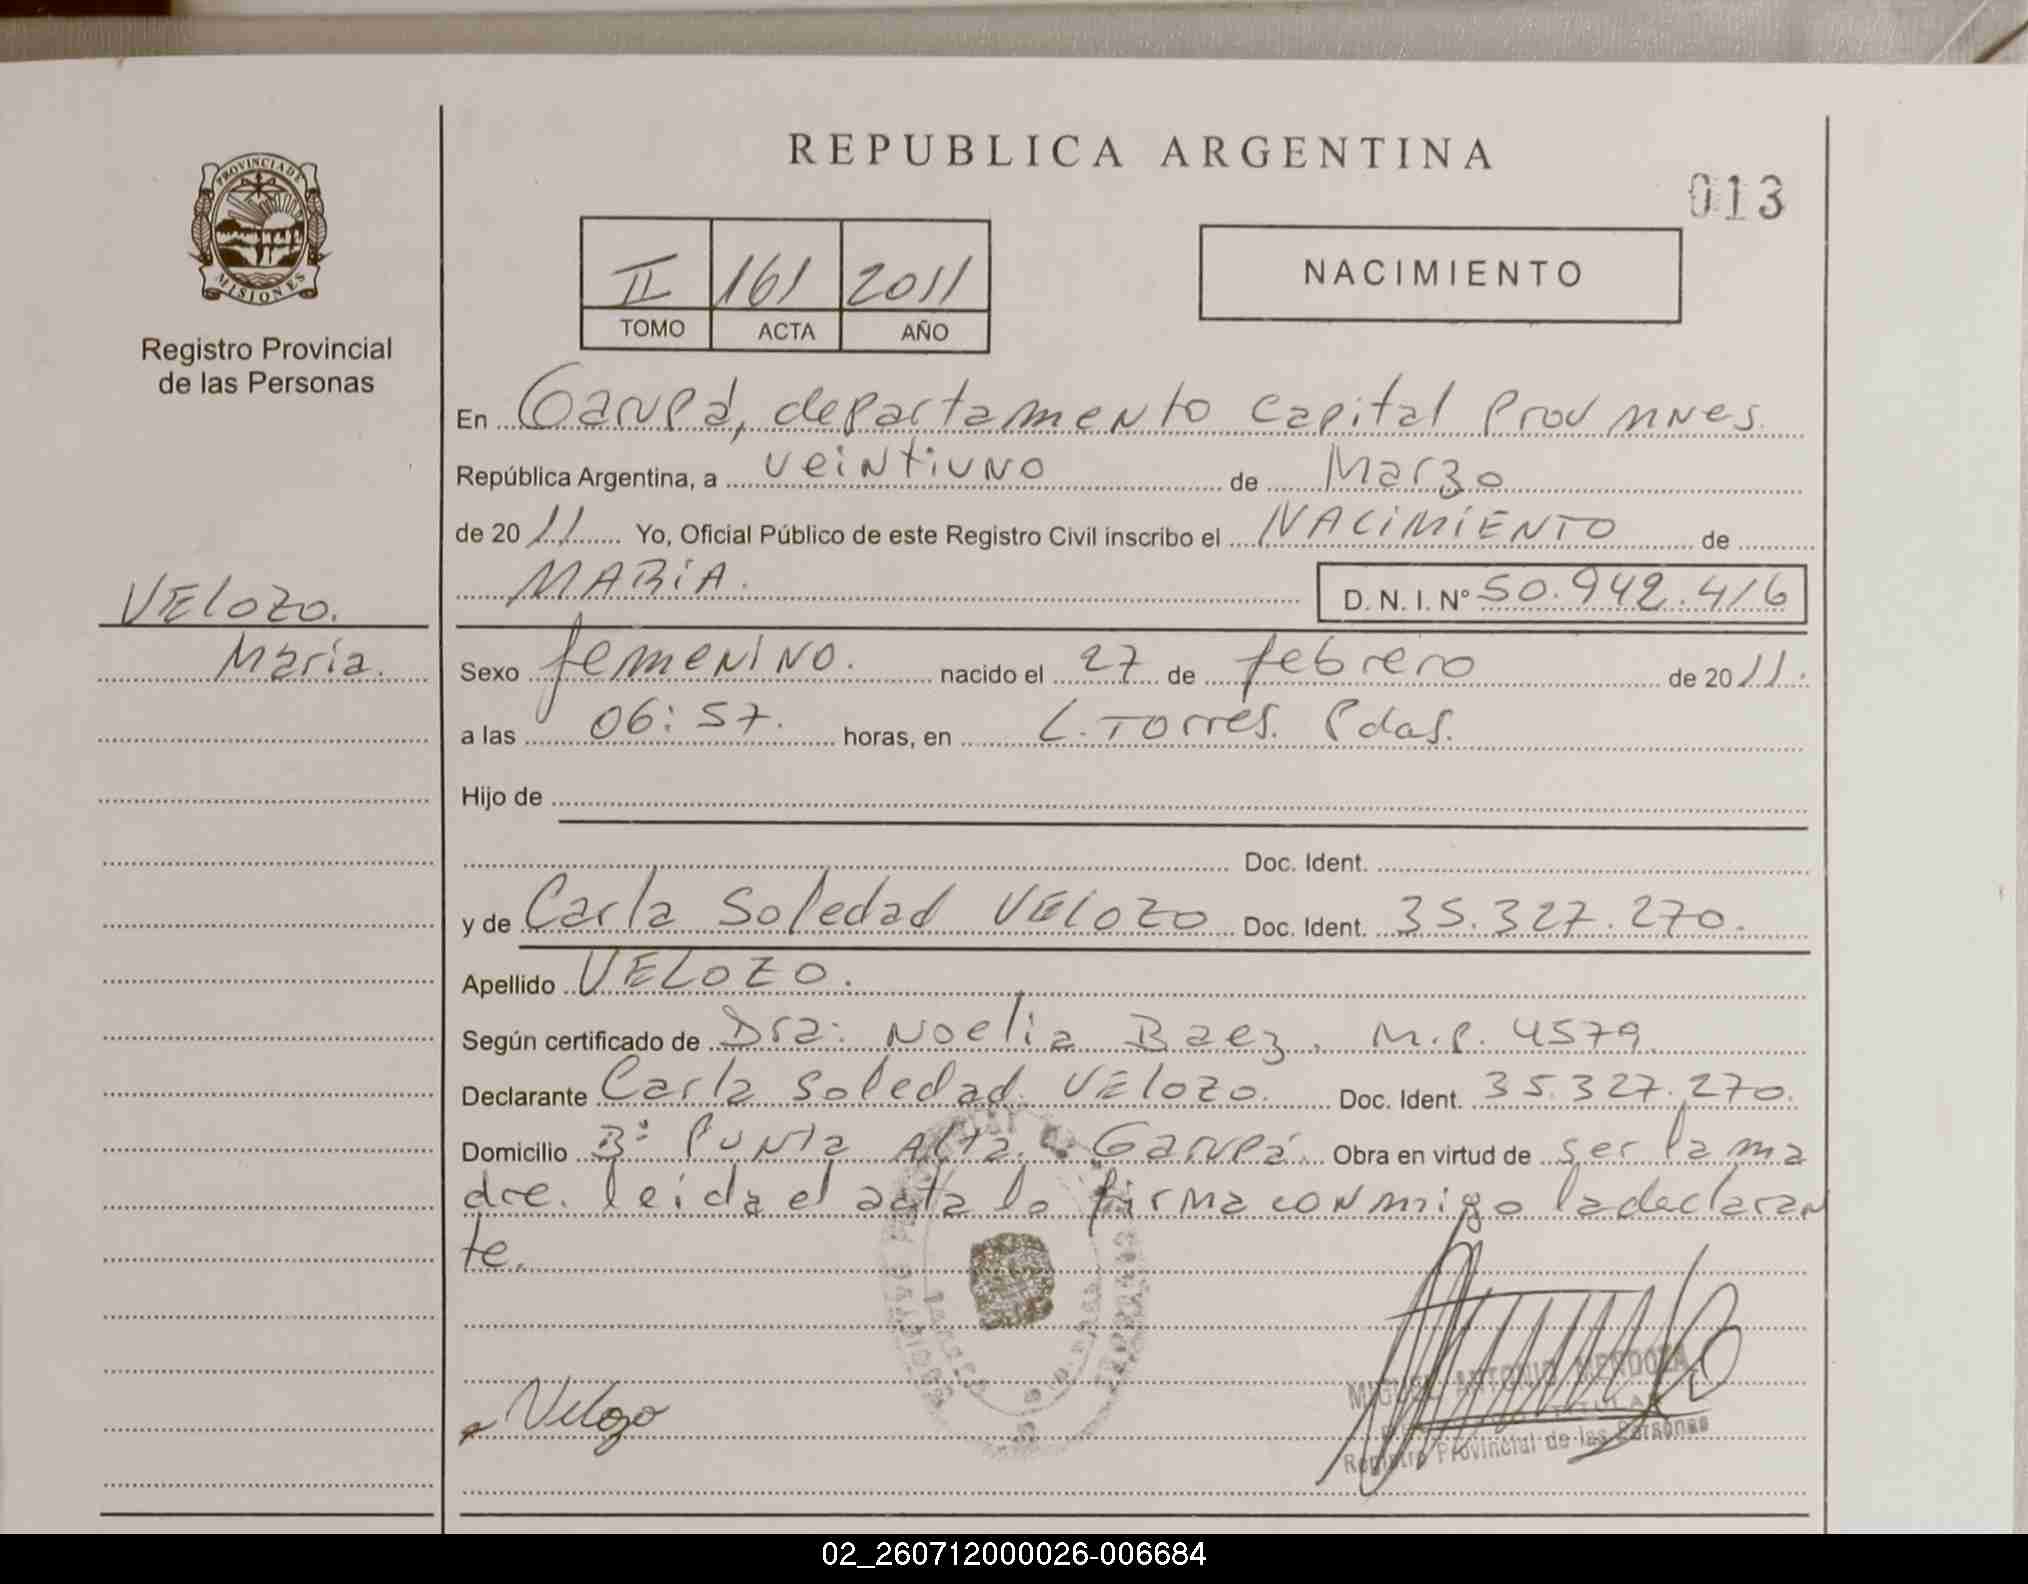 REPUBLICA ARGENTINA
013
PROVINCIA DE
MISIONES
Registro Provincial
de las Personas
II 161 2011
TOMO ACTA AÑO
NACIMIENTO
En Garupá, departamento Capital Prov Mnes.
República Argentina, a veintiuno de Marzo
de 2011 Yo, Oficial Público de este Registro Civil inscribo el NACIMIENTO de
MARIA. D. N. I. Nº 50.942.416
VELOZO.
Maria.
Sexo femenino. nacido el 27 de febrero de 2011.
a las 06:57. horas, en L. Torres. Pdas.
Hijo de
Doc. Ident.
y de Carla Soledad VELOZO Doc. Ident. 35.327.270.
Apellido VELOZO.
Según certificado de Dra: Noelia Baez. M.P. 4579.
Declarante Carla Soledad VELOZO. Doc. Ident. 35.327.270.
Domicilio Bº Punta Alta. Garupá. Obra en virtud de ser la ma
dre. leida el acta la firma conmigo la declaran
te.
Velozo
MIGUEL ANTONIO MENDOZA
Registro Provincial de las Personas
02_260712000026-006684